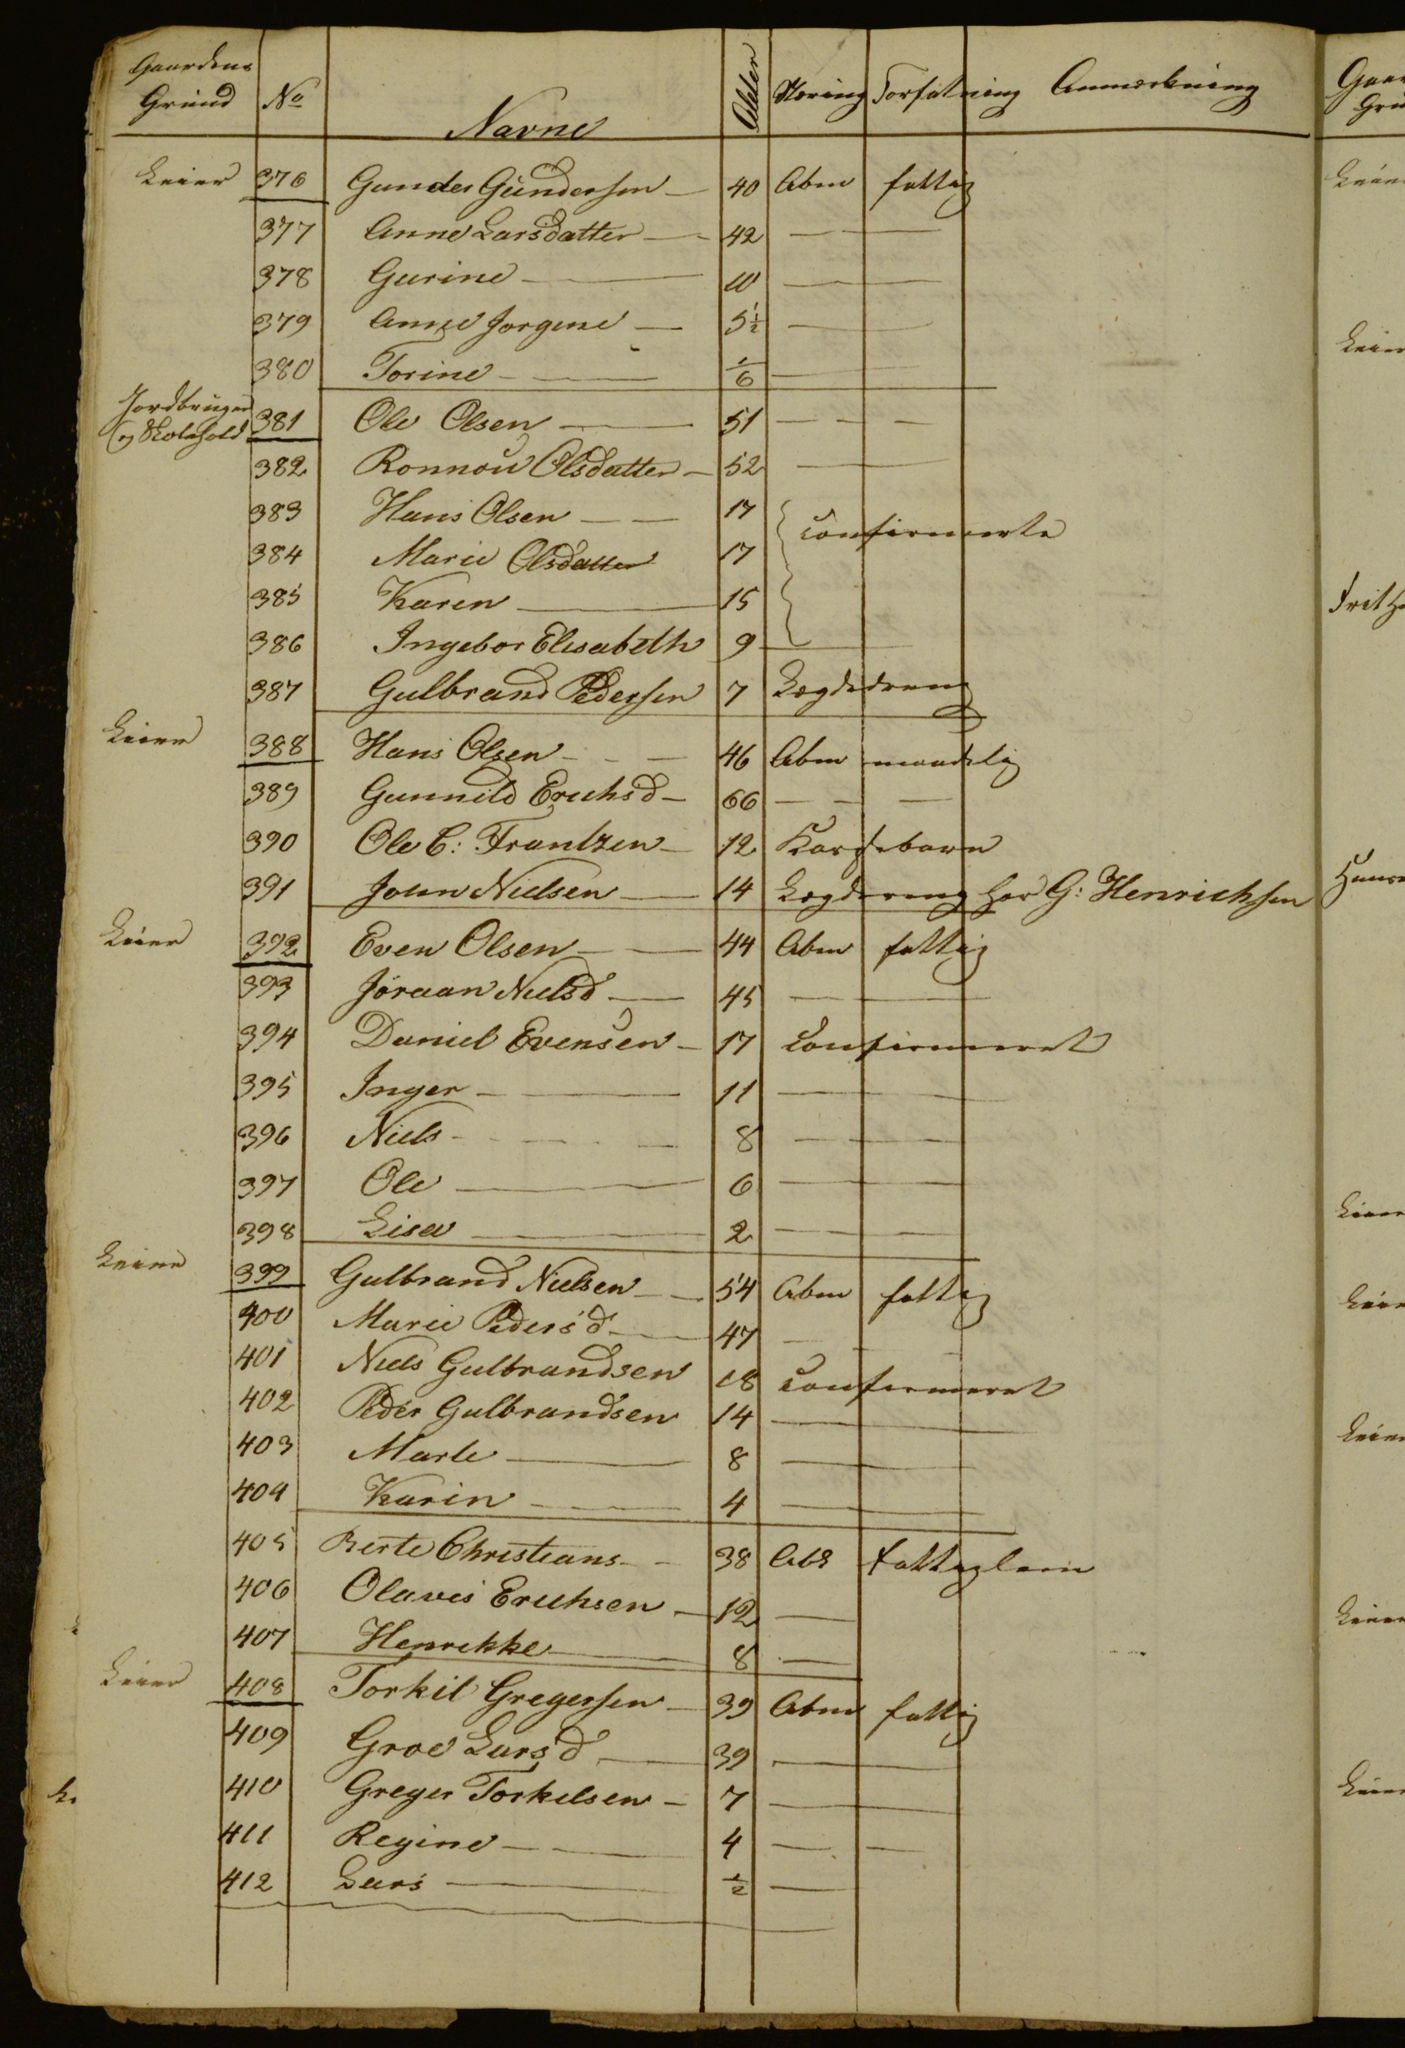 Gaardens Grund No Navne Alder Næring Forfatning Anmærkning
Leier 376 Gunder Gundersen 40 Abm fattig
377 Anne Larsdatter 42
378 Gurine 10
379 Anne Jorgene 5½
380 Torine 1/6
Jordbruger
381 Ole Olsen 51
382 Ronnou Olsdatter 52
383 Hans Olsen 17 confirmerte
384 Marie Olsdatter 17
385 Karen 15
386 Ingebor Elisabeth 9
387 Gulbrand Pedersen 7 Lægdedreng
Leier 388 Hans Olsen 46 Abm maadelig
389 Gunnild Erichsd 66
390 Ole C: Frantzen 12
391 John Nielsen 14 Lægdreng hos G: Henrichsen
Leier 392 Even Olsen 44 Abm fattig
393 Jøraan Nielsd 45
394 Daniel Evensen 17 confirmeret
395 Inger 11
396 Niels 8
397 Ole 6
398 Lisa 2
Leier 399 Gulbrand Nielsen 54 Abm fattig
400 Marie Peders'd 47
401 Niels Gulbrandsen 18 confirmeret
402 Peder Gulbrandsen 14
403 Marte 8
404 Karin 4
405 Berte Christians 38 fattiglem
406 Olaves Erichsen 12
407 Henrikke 8
Leier 408 Torkil Gregersen 39 Abm fattig
409 Groe Lars'd 39
410 Greger Torkelsen 7
411 Regine 4
412 Lars ½